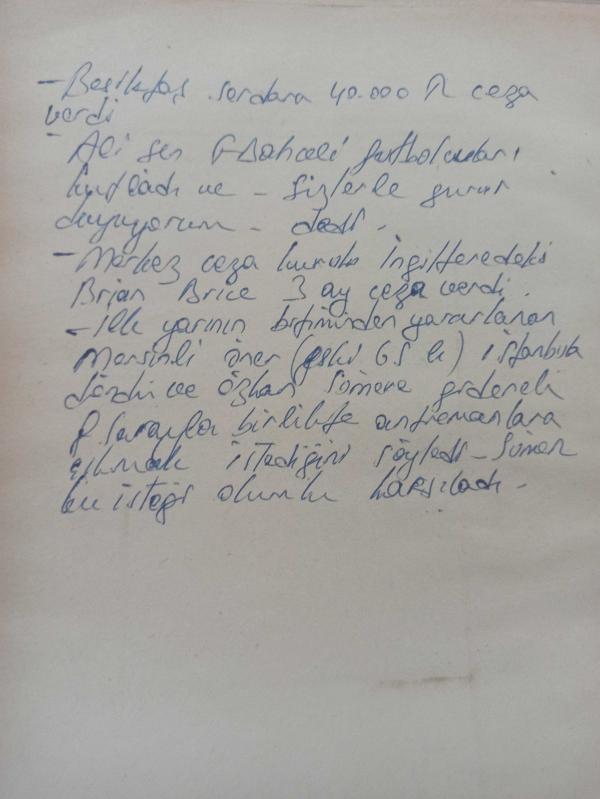 - Beşiktaş Serdara 40.000 TL ceza
verdi
- Ali Şen F-Bahçeli futbolcuları
kutladı ve - Sizlerle gurur
duyuyorum - dedi.
- Merkez ceza kurulu İngilteredeki
Brian Brice 3 ay ceza verdi.
- Ilk yarının bitiminden yararlanan
Mersinli Öner (eski G.S lı) İstanbula
döndü ve Özkan Sümere giderek
G.Sarayla birlikte antremanlara
çıkmak istediğini söyledi - Sümer
bu isteği olumlu karşıladı -